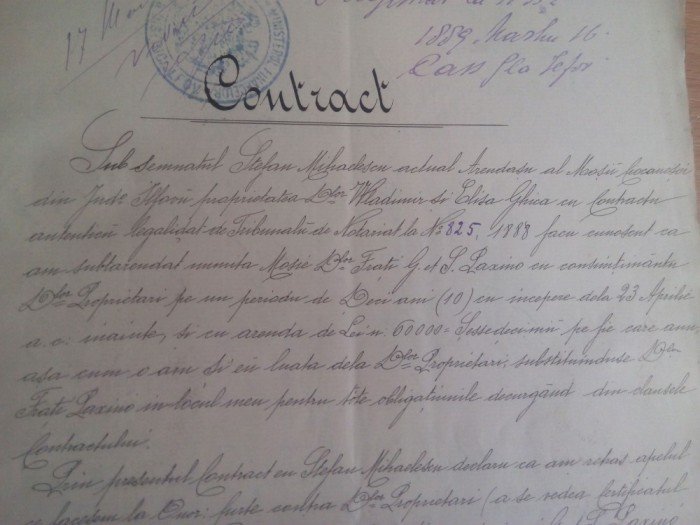 17
1889 Martie 16.
Contract
Sub semnatul Stefan Mihaelescu actual Arendasu al Mosii
din Judu Ilfovu proprietatea Dlor Wladimir si Elisa Ghica cu Contractu
autenticu legalizat de Tribunalu de Notariat la No 825, 1888 facu cunoscut ca
am subarendat numita Mosie Dlor Frati G et S. Paxino cu consimtimântu
Dlor Proprietari pe un periodu de Deci ani (10) cu incepere dela 23 Aprilie
a. c. inainte, si cu arenda de Lei n. 60000= Sessedecimii pe fie care anu
asa cum o am si eu luata dela Dlor Proprietari, substituinduse Dlor
Frati Paxino in locul meu pentru tôte obligatiunile decurgând din clausele
Contractului.
Prin presentul Contract eu Stefan Mihaelescu declaru ca am retras apelul
ce facusem la Onor. Curte contra Dlor Proprietari (a se vedea Certificatul